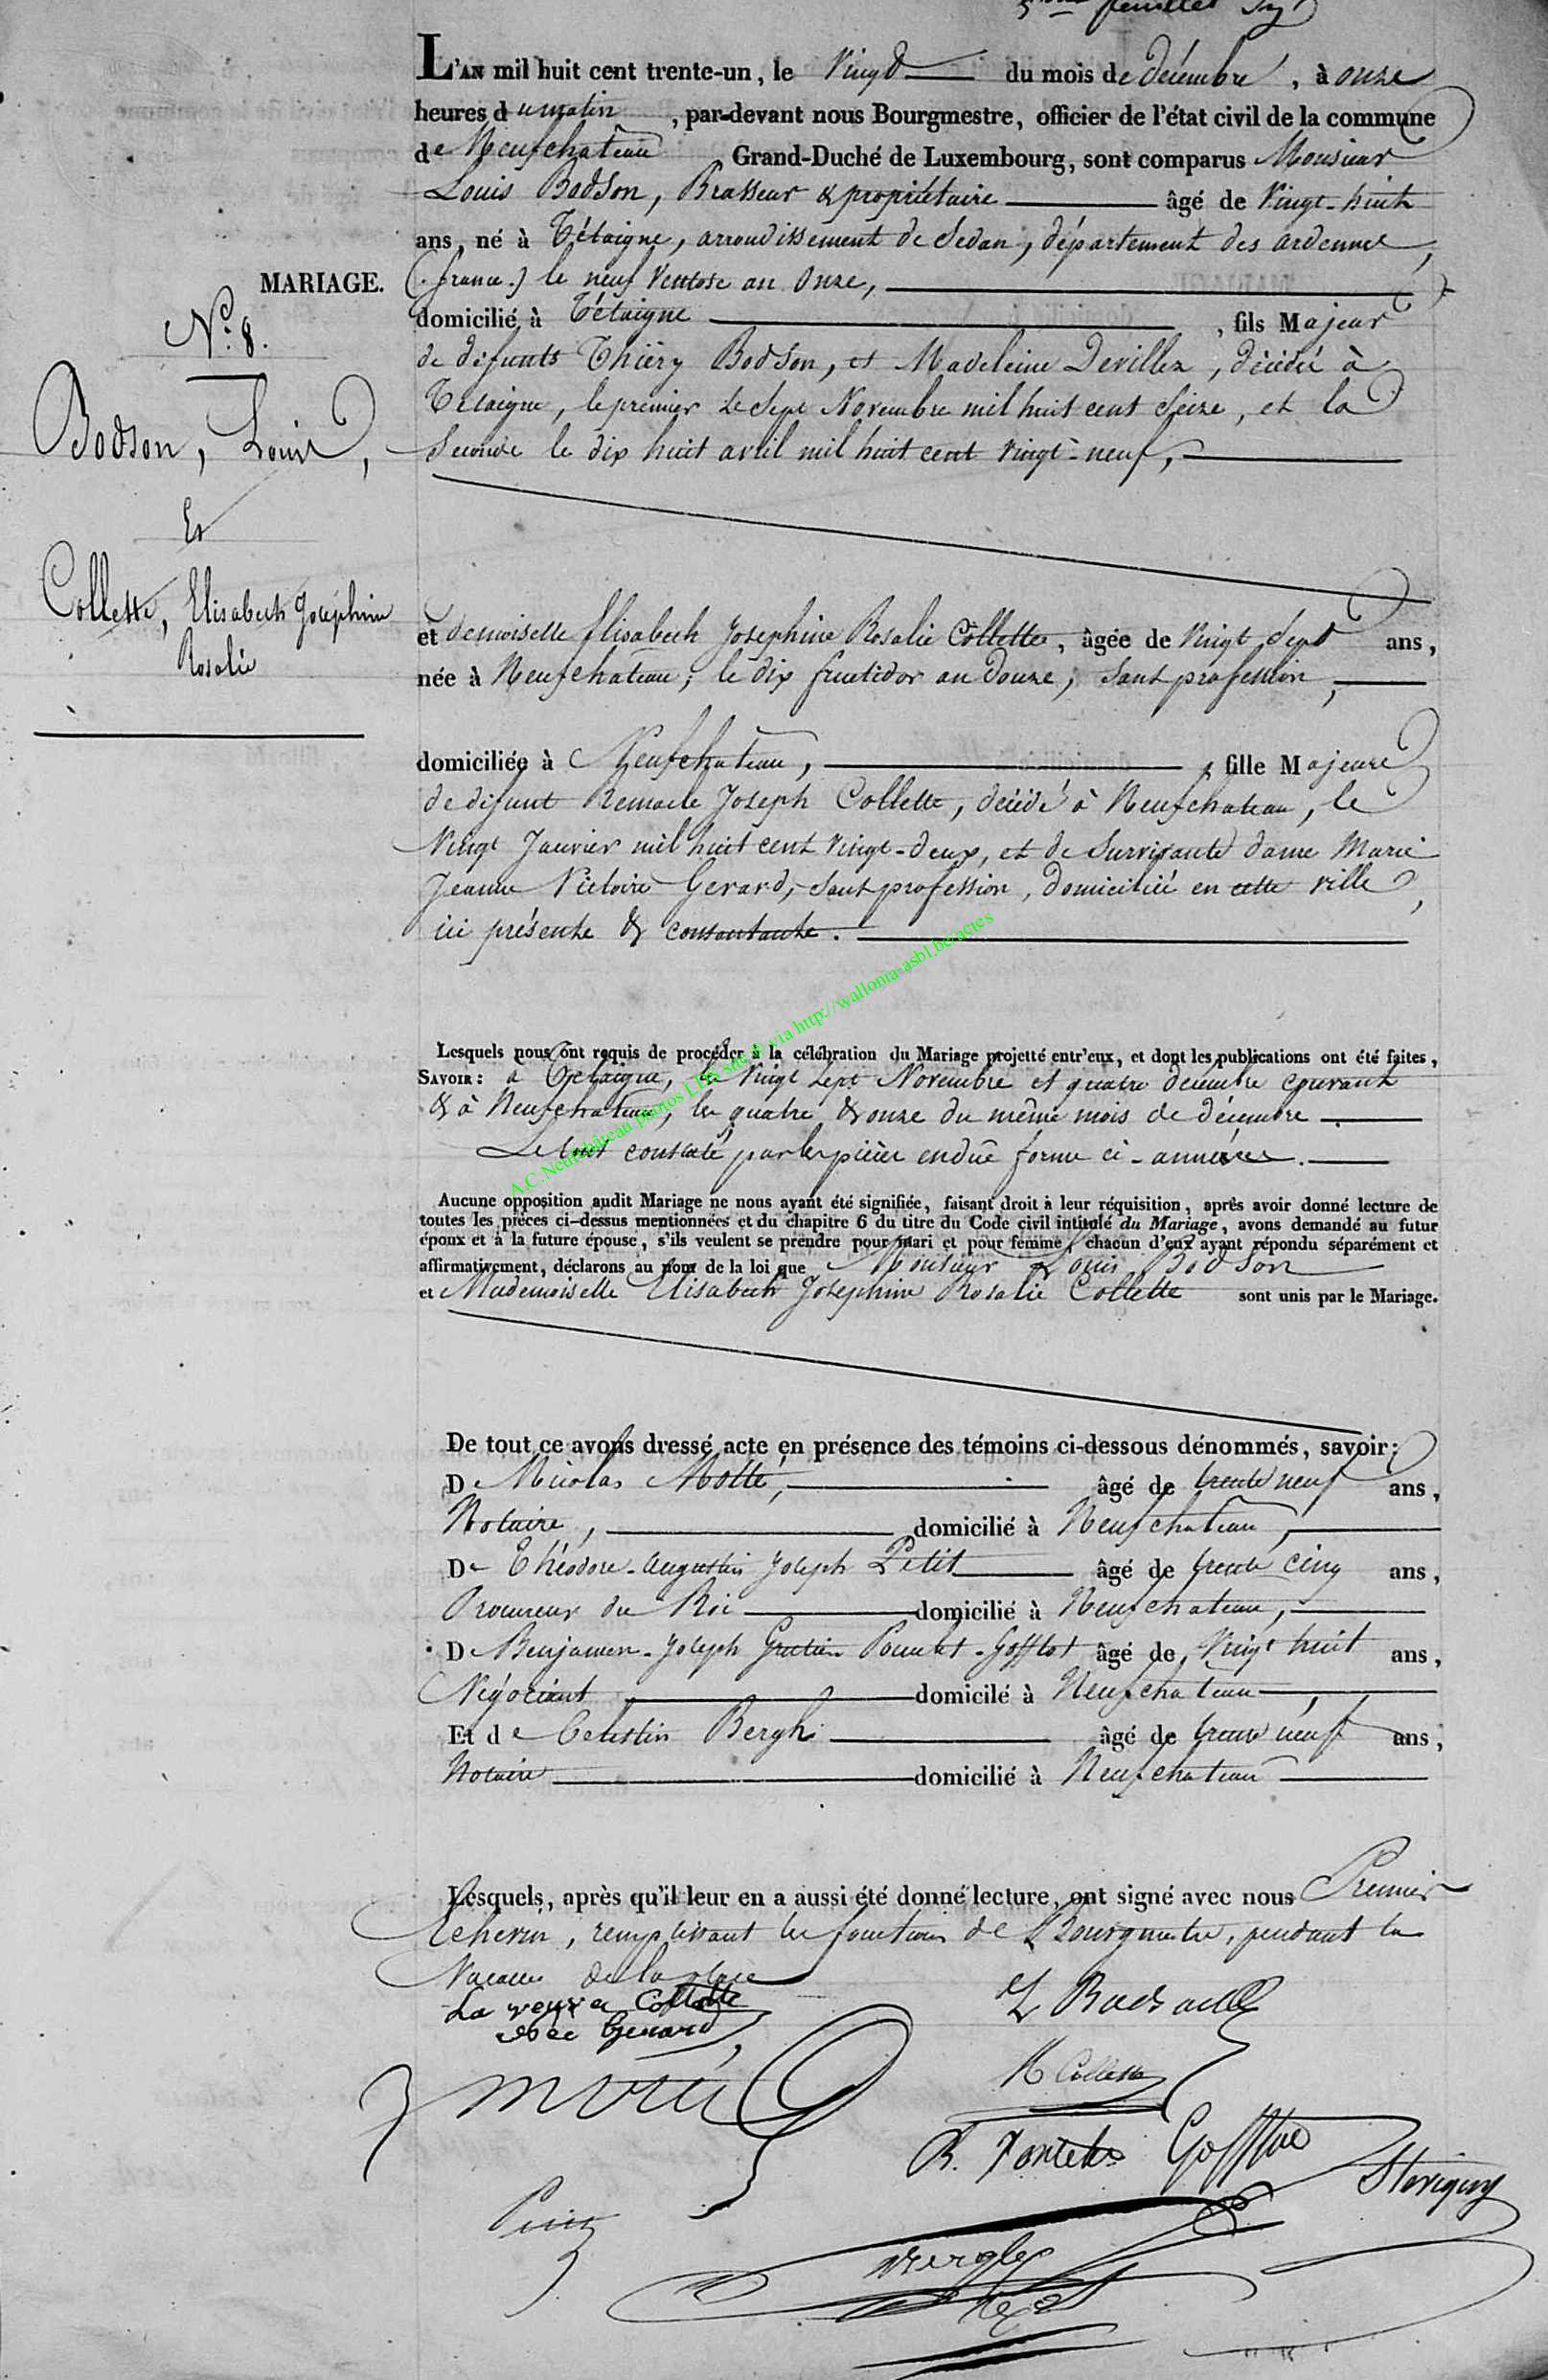 feuillet
L'AN mil huit cent trente-un, le Vingt du mois de décembre, à onze
heures du matin, par-devant nous Bourgmestre, officier de l'état civil de la commune
de Neufchateau Grand-Duché de Luxembourg, sont comparus Monsieur
Louis Bodson, Brasseur & propriétaire âgé de Vingt-huit
ans, né à Tétaigne, arrondissement de Sedan, département des ardennes,
(france.) le neuf Ventose an Onze,
MARIAGE.
domicilié à Tétaigne, fils Majeur
N.º 8.
de défunts Thiéry Bodson, et Madeleine Devillez, décédé à
Tétaigne, le premier le Sept Novembre mil huit cent Seize, et la
Bodson, Louis,
Seconde le dix huit avril mil huit cent vingt-neuf,
Et
Collette, Elisabeth Josephine
Rosalie
et demoiselle Elisabeth Josephine Rosalie Collette, âgée de Vingt Sept ans,
née à Neufchateau, le dix fructidor an Douze, Sans profession,
domiciliée à Neufchateau, fille Majeure
de défunt Remacle Joseph Collette, décédé à Neufchateau, le
Vingt Janvier mil huit cent vingt-deux, et de Survivante dame Marie
Jeanne Victoire Gerard, Sans profession, domiciliée en cette ville,
ici présente & consentante.
A.C.Neufchâteau photos LDS site via http://wallonia-asbl.be/actes
Lesquels nous ont requis de procéder à la célébration du Mariage projetté entr'eux, et dont les publications ont été faites,
SAVOIR: à Tétaigne, le Vingt Sept Novembre et quatre décembre courant
& à Neufchateau, les quatre & onze du même mois de décembre.
Le tout constaté par les pièces en dûe forme ci-annexées.
Aucune opposition audit Mariage ne nous ayant été signifiée, faisant droit à leur réquisition, après avoir donné lecture de
toutes les pièces ci-dessus mentionnées et du chapitre 6 du titre du Code civil intitulé du Mariage, avons demandé au futur
époux et à la future épouse, s'ils veulent se prendre pour mari et pour femme, chacun d'eux ayant répondu séparément et
affirmativement, déclarons au nom de la loi que Monsieur Louis Bodson
et Mademoiselle Elisabeth Josephine Rosalie Collette sont unis par le Mariage.
De tout ce avons dressé acte en présence des témoins ci-dessous dénommés, savoir:
De Nicolas Motté, âgé de trente neuf ans,
Notaire, domicilié à Neufchateau,
De Théodore-Augustin Joseph Petit âgé de trente cinq ans,
Procureur du Roi domicilié à Neufchateau,
De Benjamen-Joseph Gratien Poncelet-Gofflot âgé de Vingt huit ans,
Négociant domicilé à Neufchateau
Et de Celestin Bergh âgé de trente neuf ans,
Notaire domicilié à Neufchateau
Lesquels, après qu'il leur en a aussi été donné lecture, ont signé avec nous Premier
Echevin, remplissant les fonctions de Bourgmestre, pendant la
Vacance de la place
La veuve Collette
née Gerard
R Collette